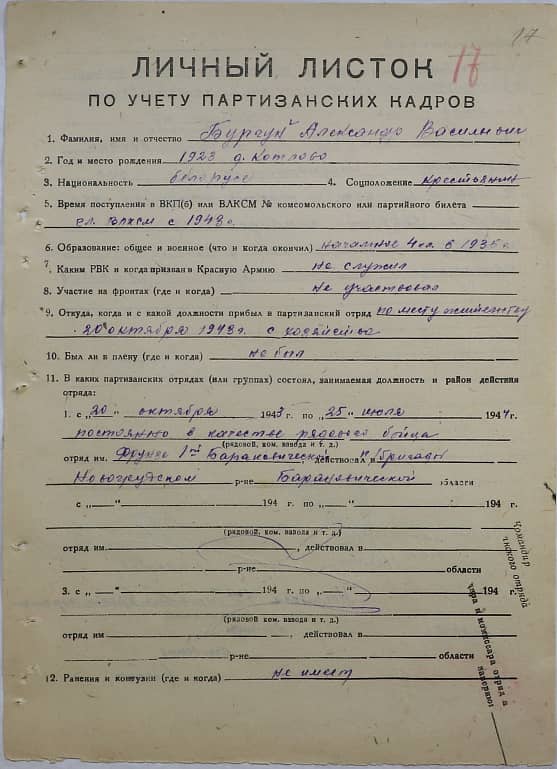 17
17
ЛИЧНЫЙ ЛИСТОК
ПО УЧЕТУ ПАРТИЗАНСКИХ КАДРОВ
1. Фамилия, имя и отчество Александр Васильевич
2. Год и место рождения 1923 д. Котлово
3. Национальность белорус 4. Соцположение крестьянин
5. Время поступления в ВКП(б) или ВЛКСМ № комсомольского или партийного билета
чл. ВЛКСМ с 1943 г.
6. Образование: общее и военное (что и когда окончил) начальное 4 кл. в 1936 г
7. Каким РВК и когда призван в Красную Армию не служил
8. Участие на фронтах (где и когда) не участвовал
9. Откуда, когда и с какой должности прибыл в партизанский отряд по месту жительству
20 октября 1943 г. с хозяйства
10. Был ли в плену (где и когда) не был
11. В каких партизанских отрядах (или группах) состоял, занимаемая должность и район действия
отряда:
1. с „20" октября 1943 г. по „25" июля 1944 г.
постоянно в качестве рядового бойца
(рядовой, ком. взвода и т. д.)
отряд им. Фрунзе 1ой Барановической бригады, действовал в
Новогрудском р-не Барановической области
с „ " 194 г. по „ " 194 г.
(рядовой, ком. взвода и т. д.)
отряд им , действовал в
р-не области
3. с „ " 194 г. по „ " 194 г.
(рядовой, ком. взвода и т. д.)
отряд им , действовал в
р-не области
12. Ранения и контузии (где и когда) не имеет
Командир
отряда
и комиссара отряда